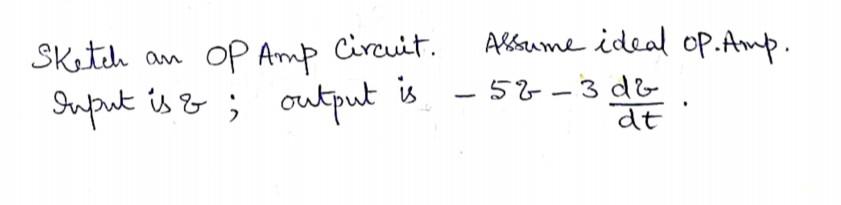 Sketch an OP Amp Circuit. Assume ideal OP.Amp.
Input is v ; output is - 5v - 3 dv/dt .